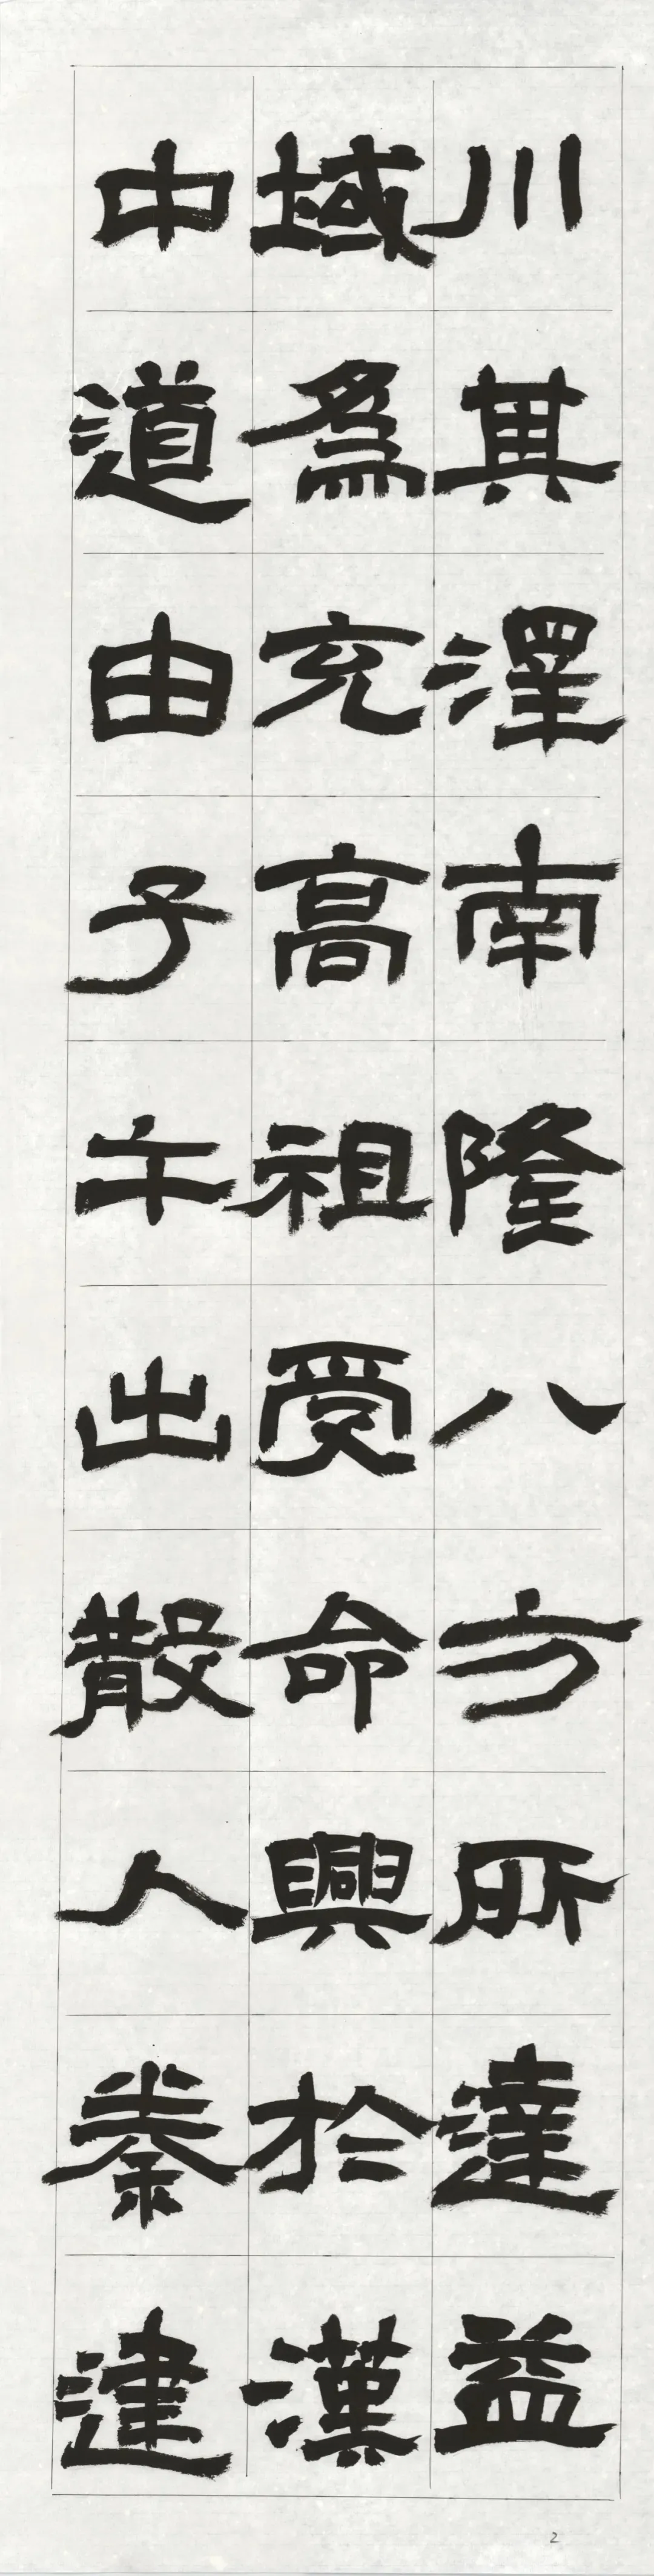 川其澤南隆八方所達益
域爲充高祖受命興於漢
中道由子午出散入秦建
2